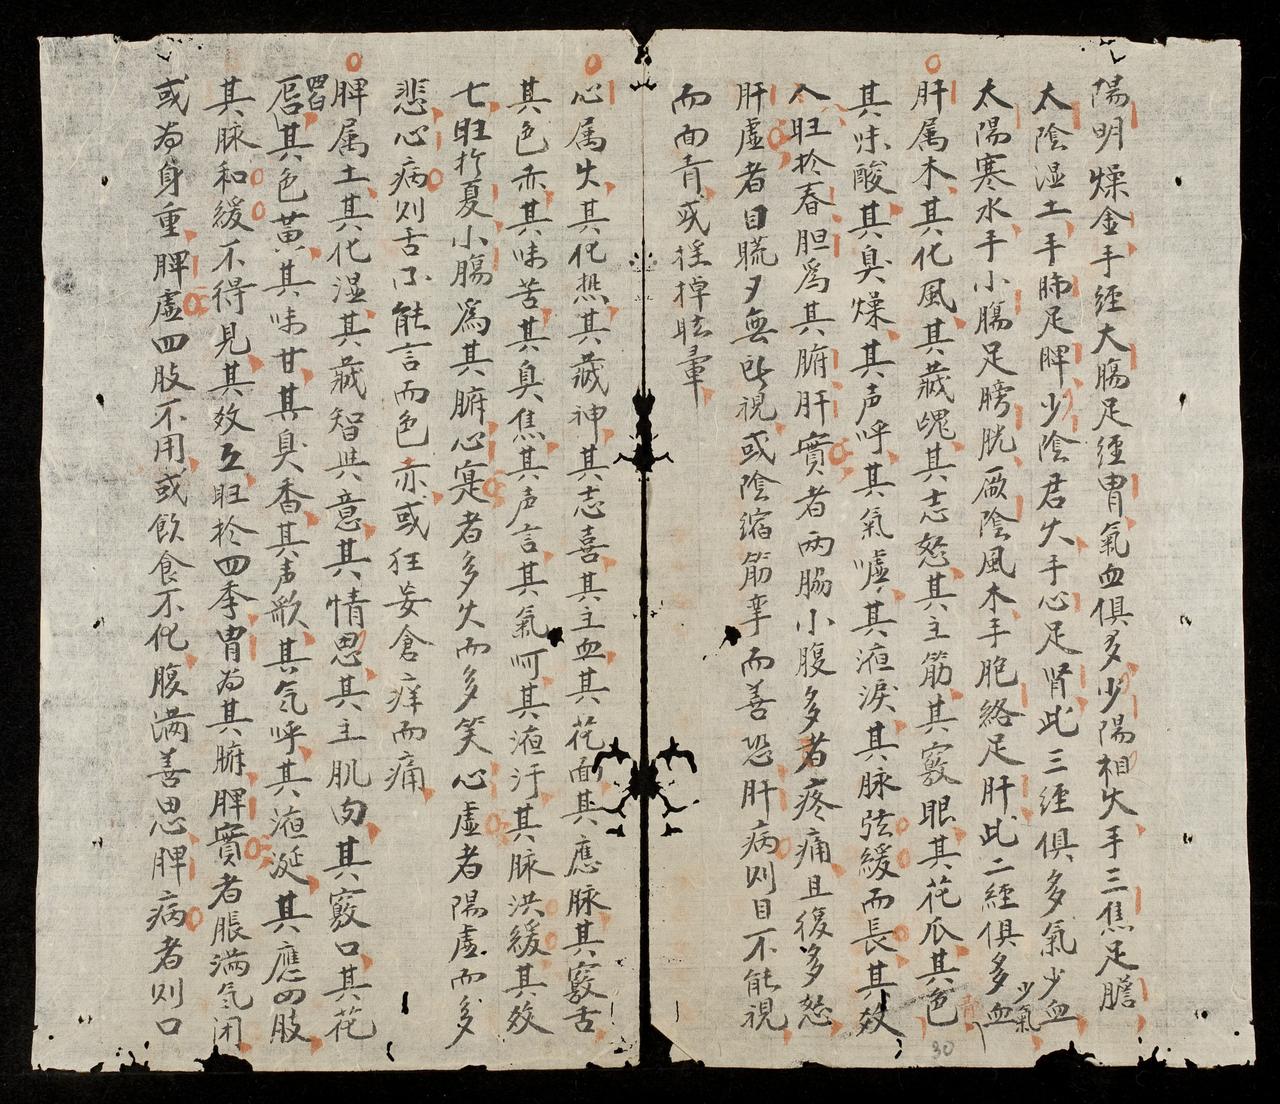 陽明燥金手經大膓足經胃氣血俱多少陽相火手三焦足膽
太陰湿土手肺足脾少陰君火手心足肾此三経俱多氣少血
太陽寒水手小膓足膀胱厥陰風木手胞絡足肝此二經俱多血少氣
肝属木其化風其藏魄其志怒其主筋其竅眼其花爪其色
其味酸其臭燥其声呼其氣嘘其液淚其脉弦緩而長其效
八旺扵春胆爲其腑肝實者两脇小腹多者疼痛且復多怒
肝虛者目䀮夕無所視或陰縮筋挛而善恐肝病则目不能視
而面青或揺掉眩暈
心属火其化热其藏神其志喜其主血其花面其應脉其竅舌
其色赤其味苦其臭焦其声言其氣呵其液汗其脉洪緩其效
七旺扵夏小膓爲其腑心寔者多火而多笑心虚者陽虚而多
悲心病则舌不能言而色赤或狂妄倉痒而痛
脾属土其化湿其藏智与意其情思其主肌肉其竅口其花
唇其色黄其味甘其臭香其声歌其气呼其液涎其應四肢
四白
其脉和緩不得見其效五旺扵四季胃为其腑脾實者脹满气闭
或为身重脾虚四肢不用或飲食不化腹满善思脾病者则口
30